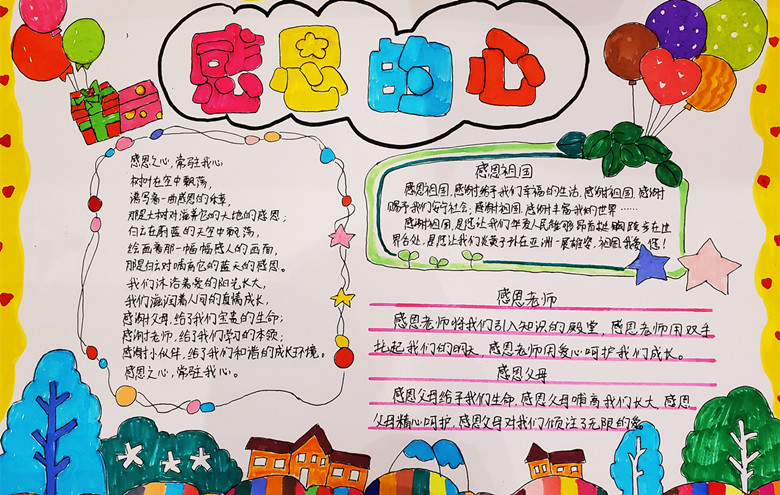 感恩的心
感恩之心，常驻我心
树叶在空中飘荡，
谱写着一曲感恩的乐章，
那是大树对滋养它的大地的感恩；
白云在蔚蓝的天空中飘荡，
绘画着那一幅幅感人的画面，
那是白云对哺育它的蓝天的感恩。
我们沐浴着爱的阳光长大，
我们滋润着人间的真情成长，
感谢父母，给了我们宝贵的生命；
感谢老师，给了我们学习的本领；
感谢小伙伴，给了我们和谐的成长环境。
感恩之心，常驻我心。
感恩祖国
感恩祖国，感谢给予我们幸福的生活，感谢祖国，感谢
赐予我们安宁社会；感谢祖国，感谢丰富我的世界……
感谢祖国，是您让我们华夏人民能够昂首挺胸跻身在世
界各处，是您让我们炎黄子孙在亚洲一展雄姿，祖国我爱您！
感恩老师
感恩老师将我们引入知识的殿堂，感恩老师用双手
托起我们的明天，感恩老师用爱心呵护我们成长。
感恩父母
感恩父母给予我们生命，感恩父母哺育我们长大，感恩
父母精心呵护，感恩父母对我们倾注了无限的爱